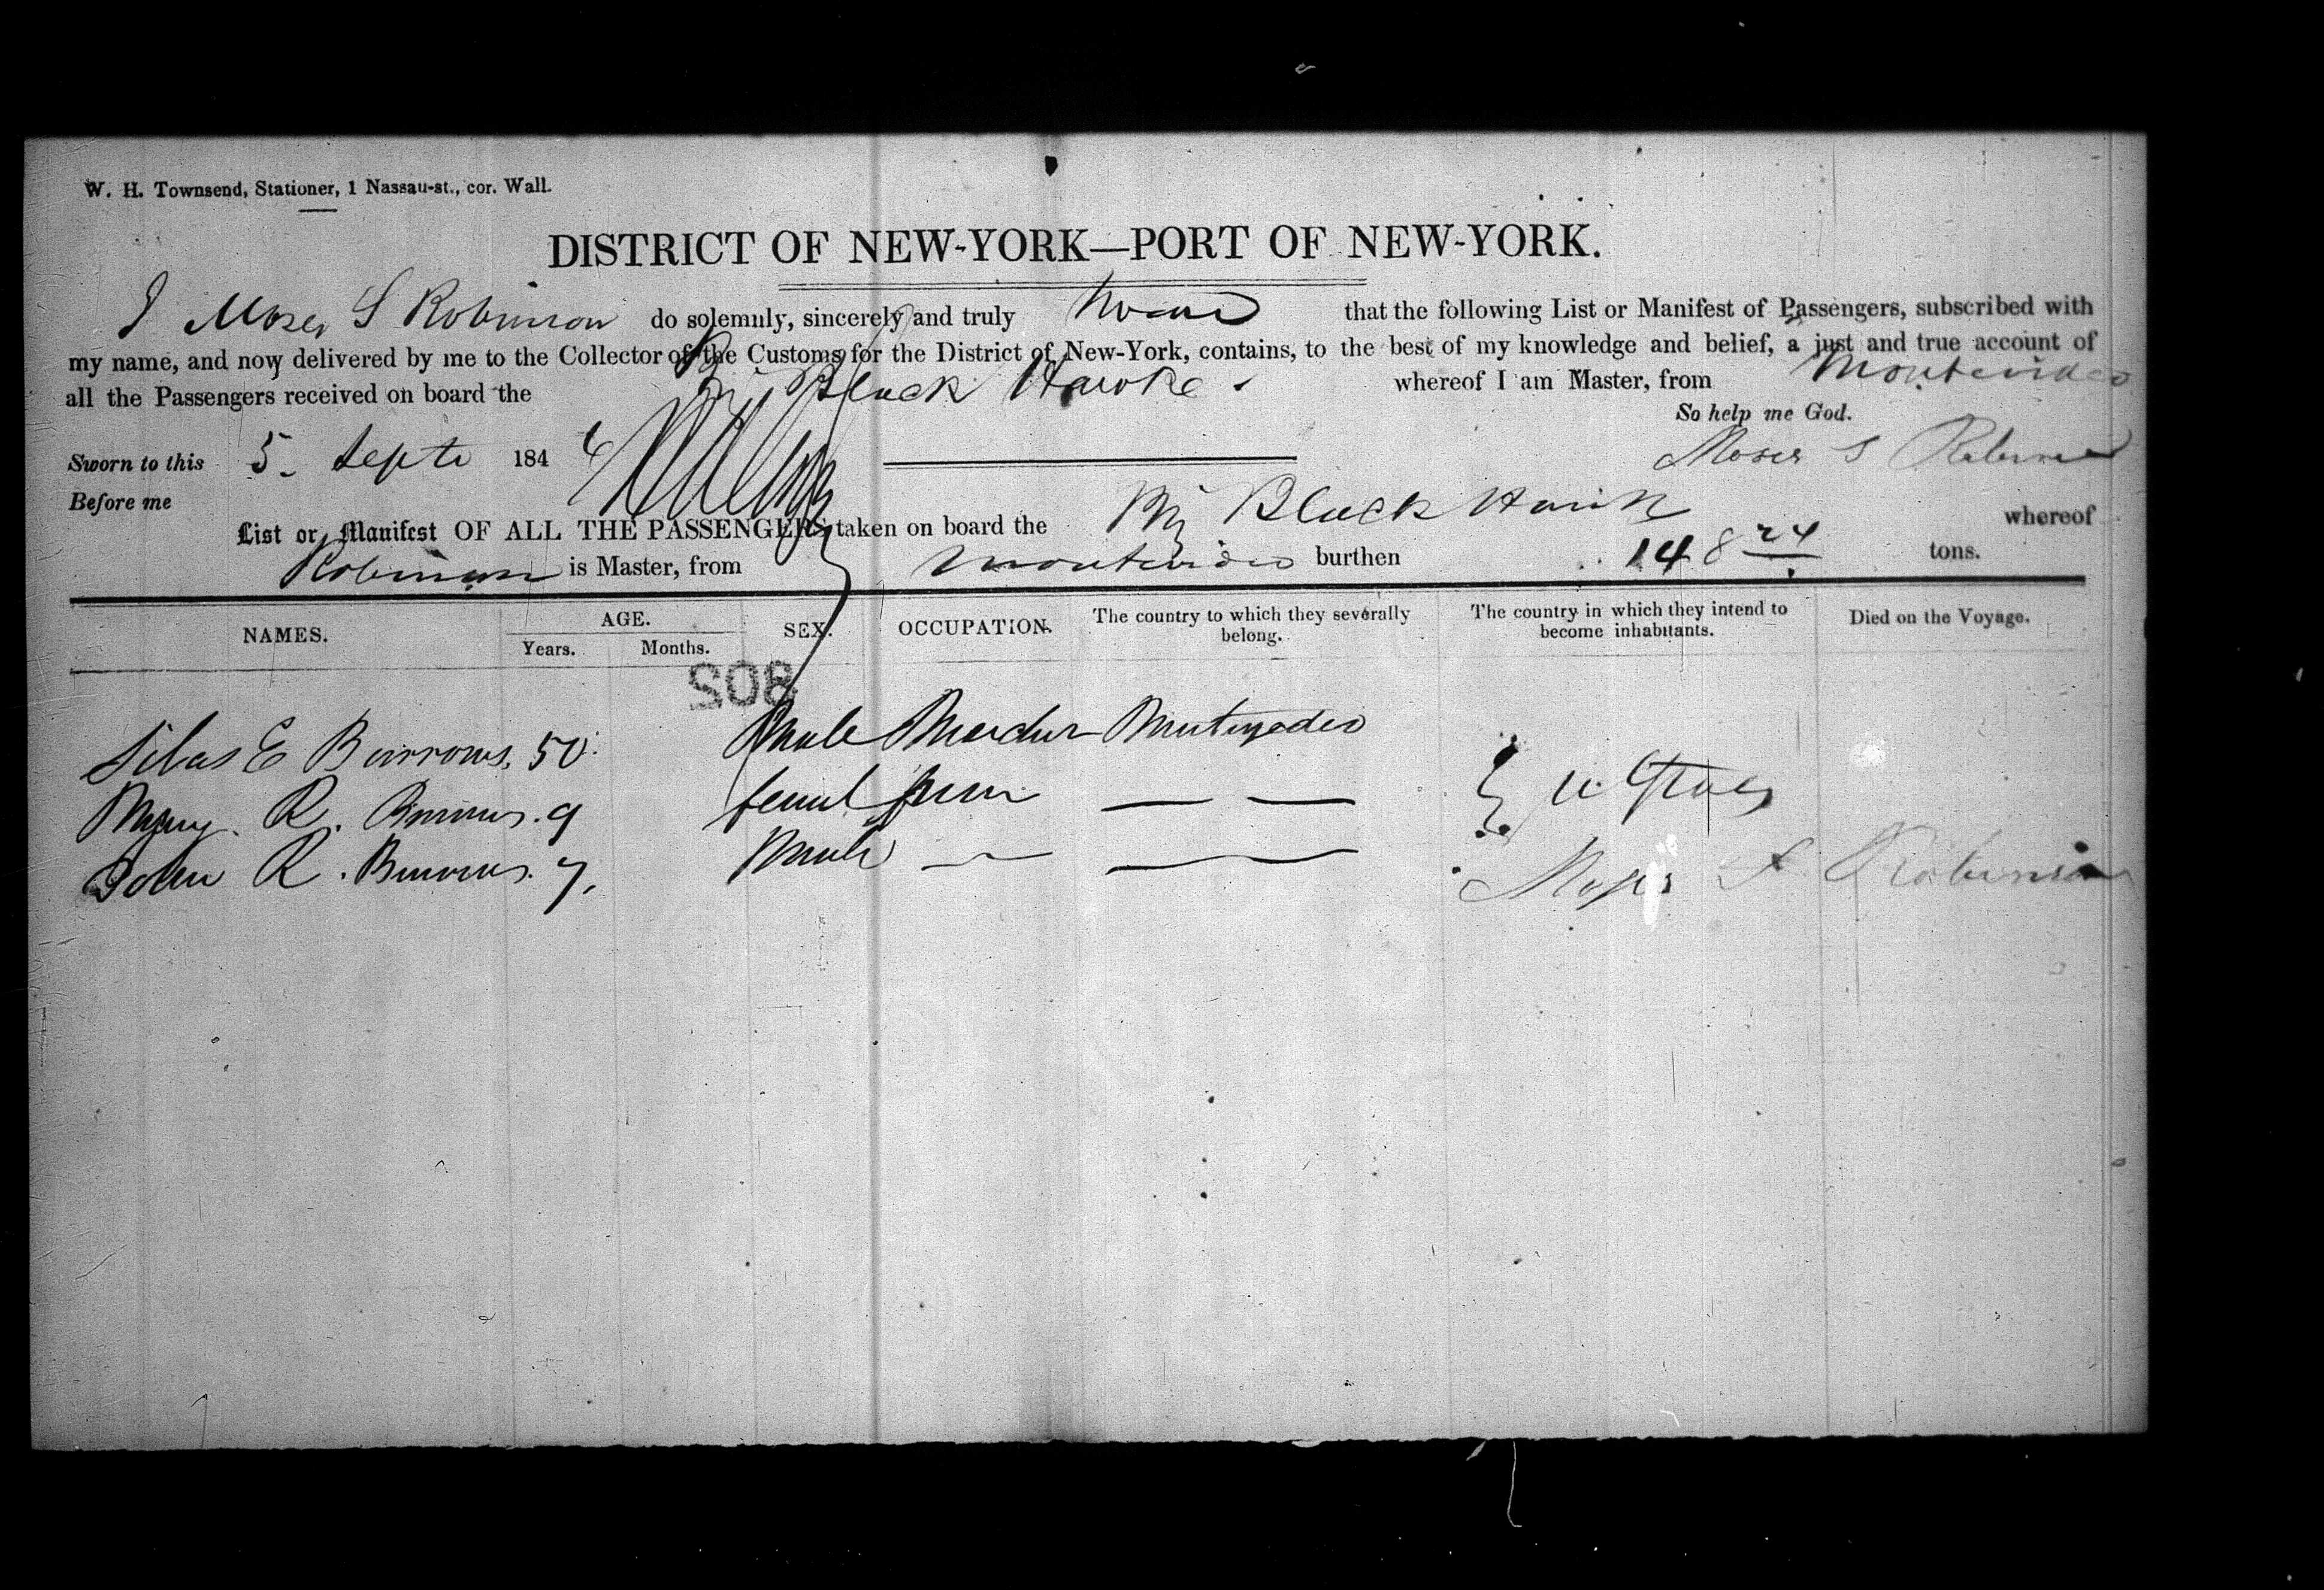 W. H. Townsend, Stationer, 1 Nassau-st., cor. Wall.
DISTRICT OF NEW-YORK—PORT OF NEW-YORK.
I Moses S Robinson do solemnly, sincerely and truly swear that the following List or Manifest of Passengers, subscribed with
my name, and now delivered by me to the Collector of the Customs for the District of New-York, contains, to the best of my knowledge and belief, a just and true account of
all the Passengers received on board the Black Hawke whereof I am Master, from Montevideo
So help me God.
Sworn to this 5 Septe 1846 Moses S Robinson
Before me
List or Manifest OF ALL THE PASSENGERS taken on board the Black Hawk whereof
Robinson is Master, from Montevideo burthen 148 24 tons.
NAMES. AGE. Years. Months. SEX. OCCUPATION. The country to which they severally belong. The country in which they intend to become inhabitants. Died on the Voyage.
802
Silas E Burrows. 50 Male Montevideo
Mary R. Burrows. 9 — — U States
John R. Burrows. 7. Male — —
Moses S Robinson